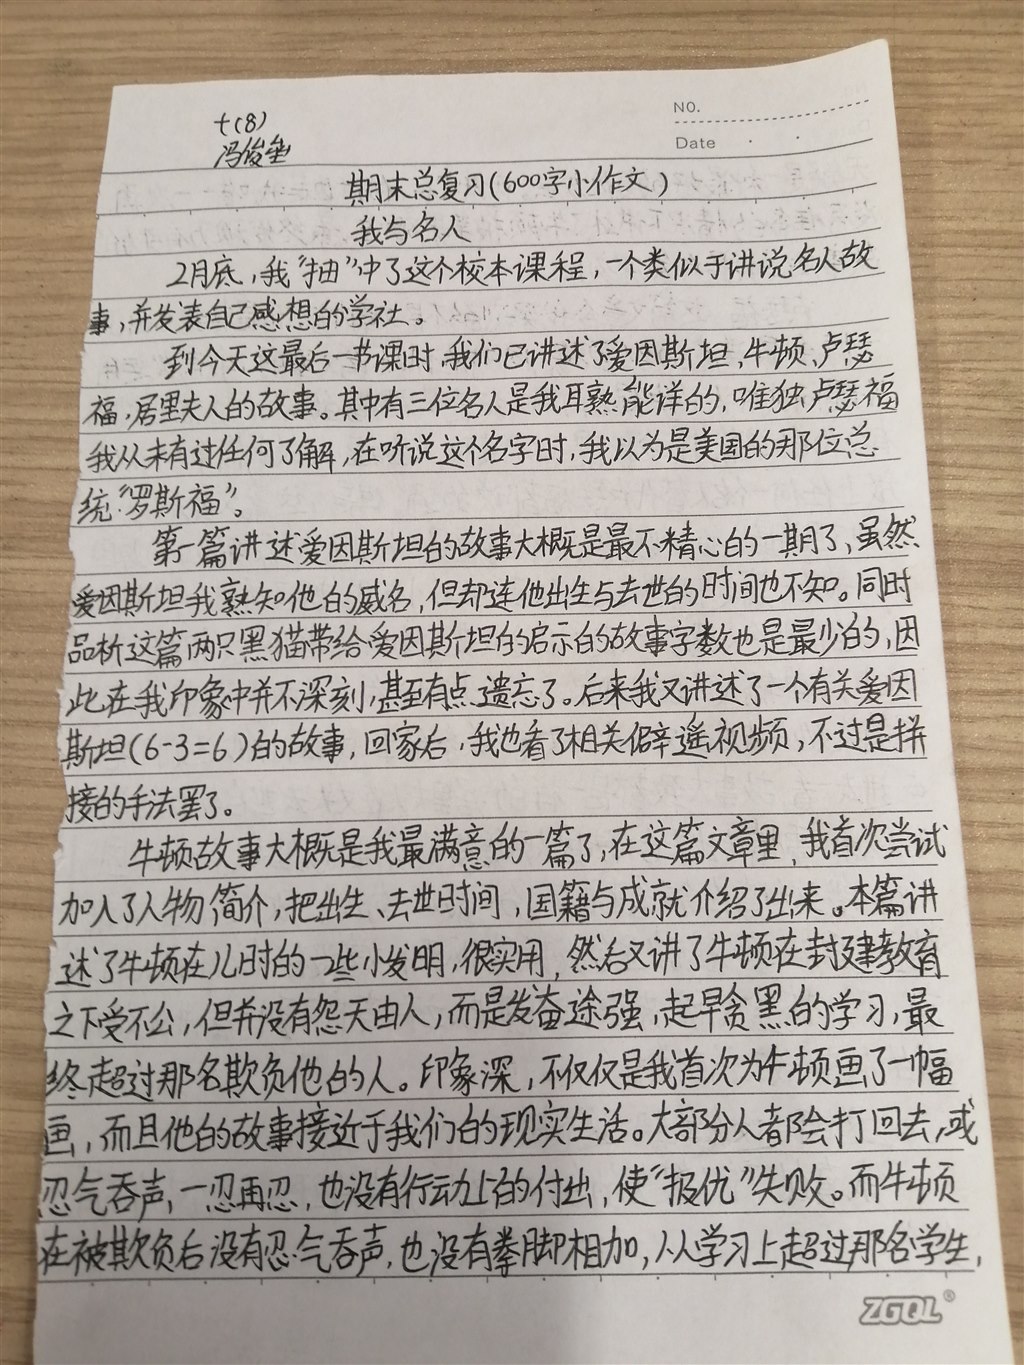 NO.
Date
七(8)
冯俊垒
期末总复习(600字小作文)
我与名人
2月底，我“抽”中了这个校本课程，一个类似于讲说名人故
事，并发表自己感想的学社。
到今天这最后一节课时，我们已讲述了爱因斯坦，牛顿、卢瑟
福，居里夫人的故事。其中有三位名人是我耳熟能详的，唯独卢瑟福
我从未有过任何了解，在听说这个名字时，我以为是美国的那位总
统“罗斯福”。
第一篇讲述爱因斯坦的故事大概是最不精心的一期了，虽然
爱因斯坦我熟知他的威名，但却连他出生与去世的时间也不知。同时
品析这篇两只黑猫带给爱因斯坦的启示的故事字数也是最少的，因
此在我印象中并不深刻，甚至有点遗忘了。后来我又讲述了一个有关爱因
斯坦(6-3=6)的故事，回家后，我也看了相关辟遥视频，不过是拼
接的手法罢了。
牛顿故事大概是我最满意的一篇了，在这篇文章里，我首次尝试
加入了人物简介，把出生、去世时间，国籍与成就介绍了出来。本篇讲
述了牛顿在儿时的一些小发明，很实用，然后又讲了牛顿在封建教育
之下受不公，但并没有怨天由人，而是发奋途强，起早贪黑的学习，最
终超过那名欺负他的人。印象深，不仅仅是我首次为牛顿画了一幅
画，而且他的故事接近于我们的现实生活。大部分人者都会打回去，或
忍气吞声，一忍再忍，也没有行动上的付出，使“报优”失败。而牛顿
在被欺负后没有忍气吞声，也没有拳脚相加，从学习上超过那名学生，
ZGQL®